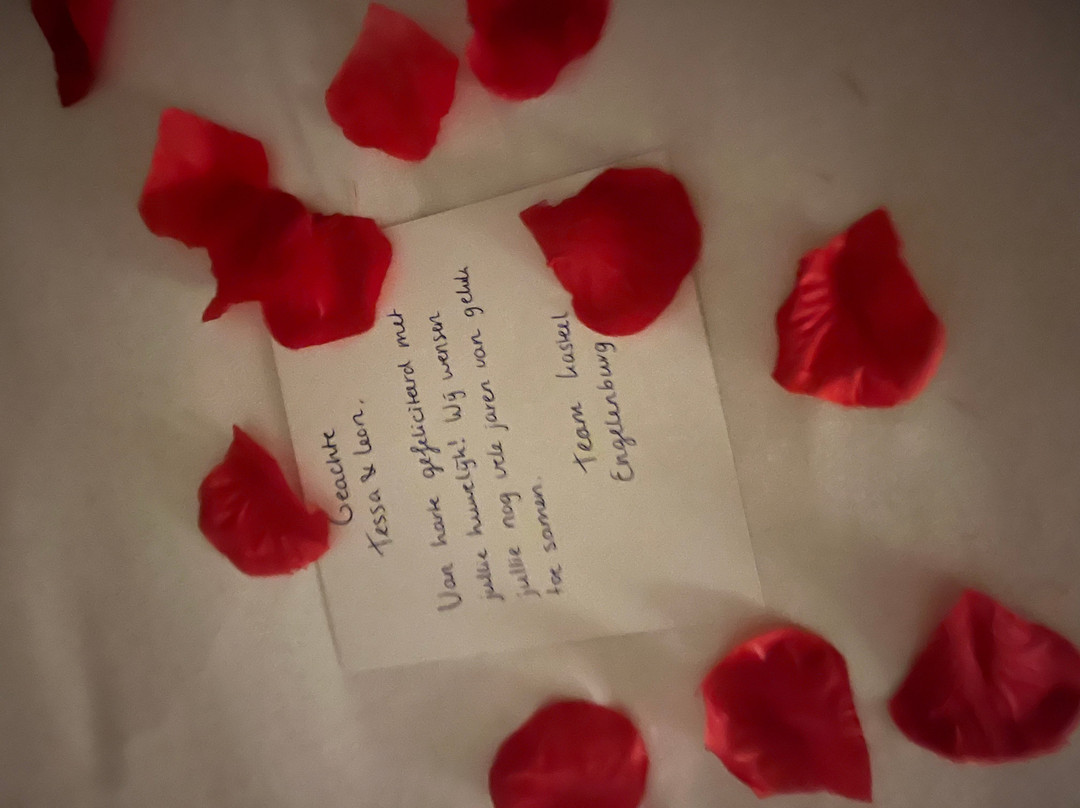 Geachte
Tessa & Leon,
Van harte gefeliciteerd met
jullie huwelijk! Wij wensen
jullie nog vele jaren van geluk
toe samen.
Team kasteel
Engelenburg